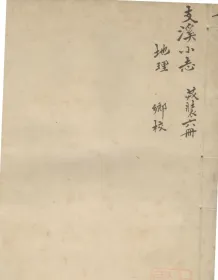 支溪小志 共裝六冊
地理 鄉校